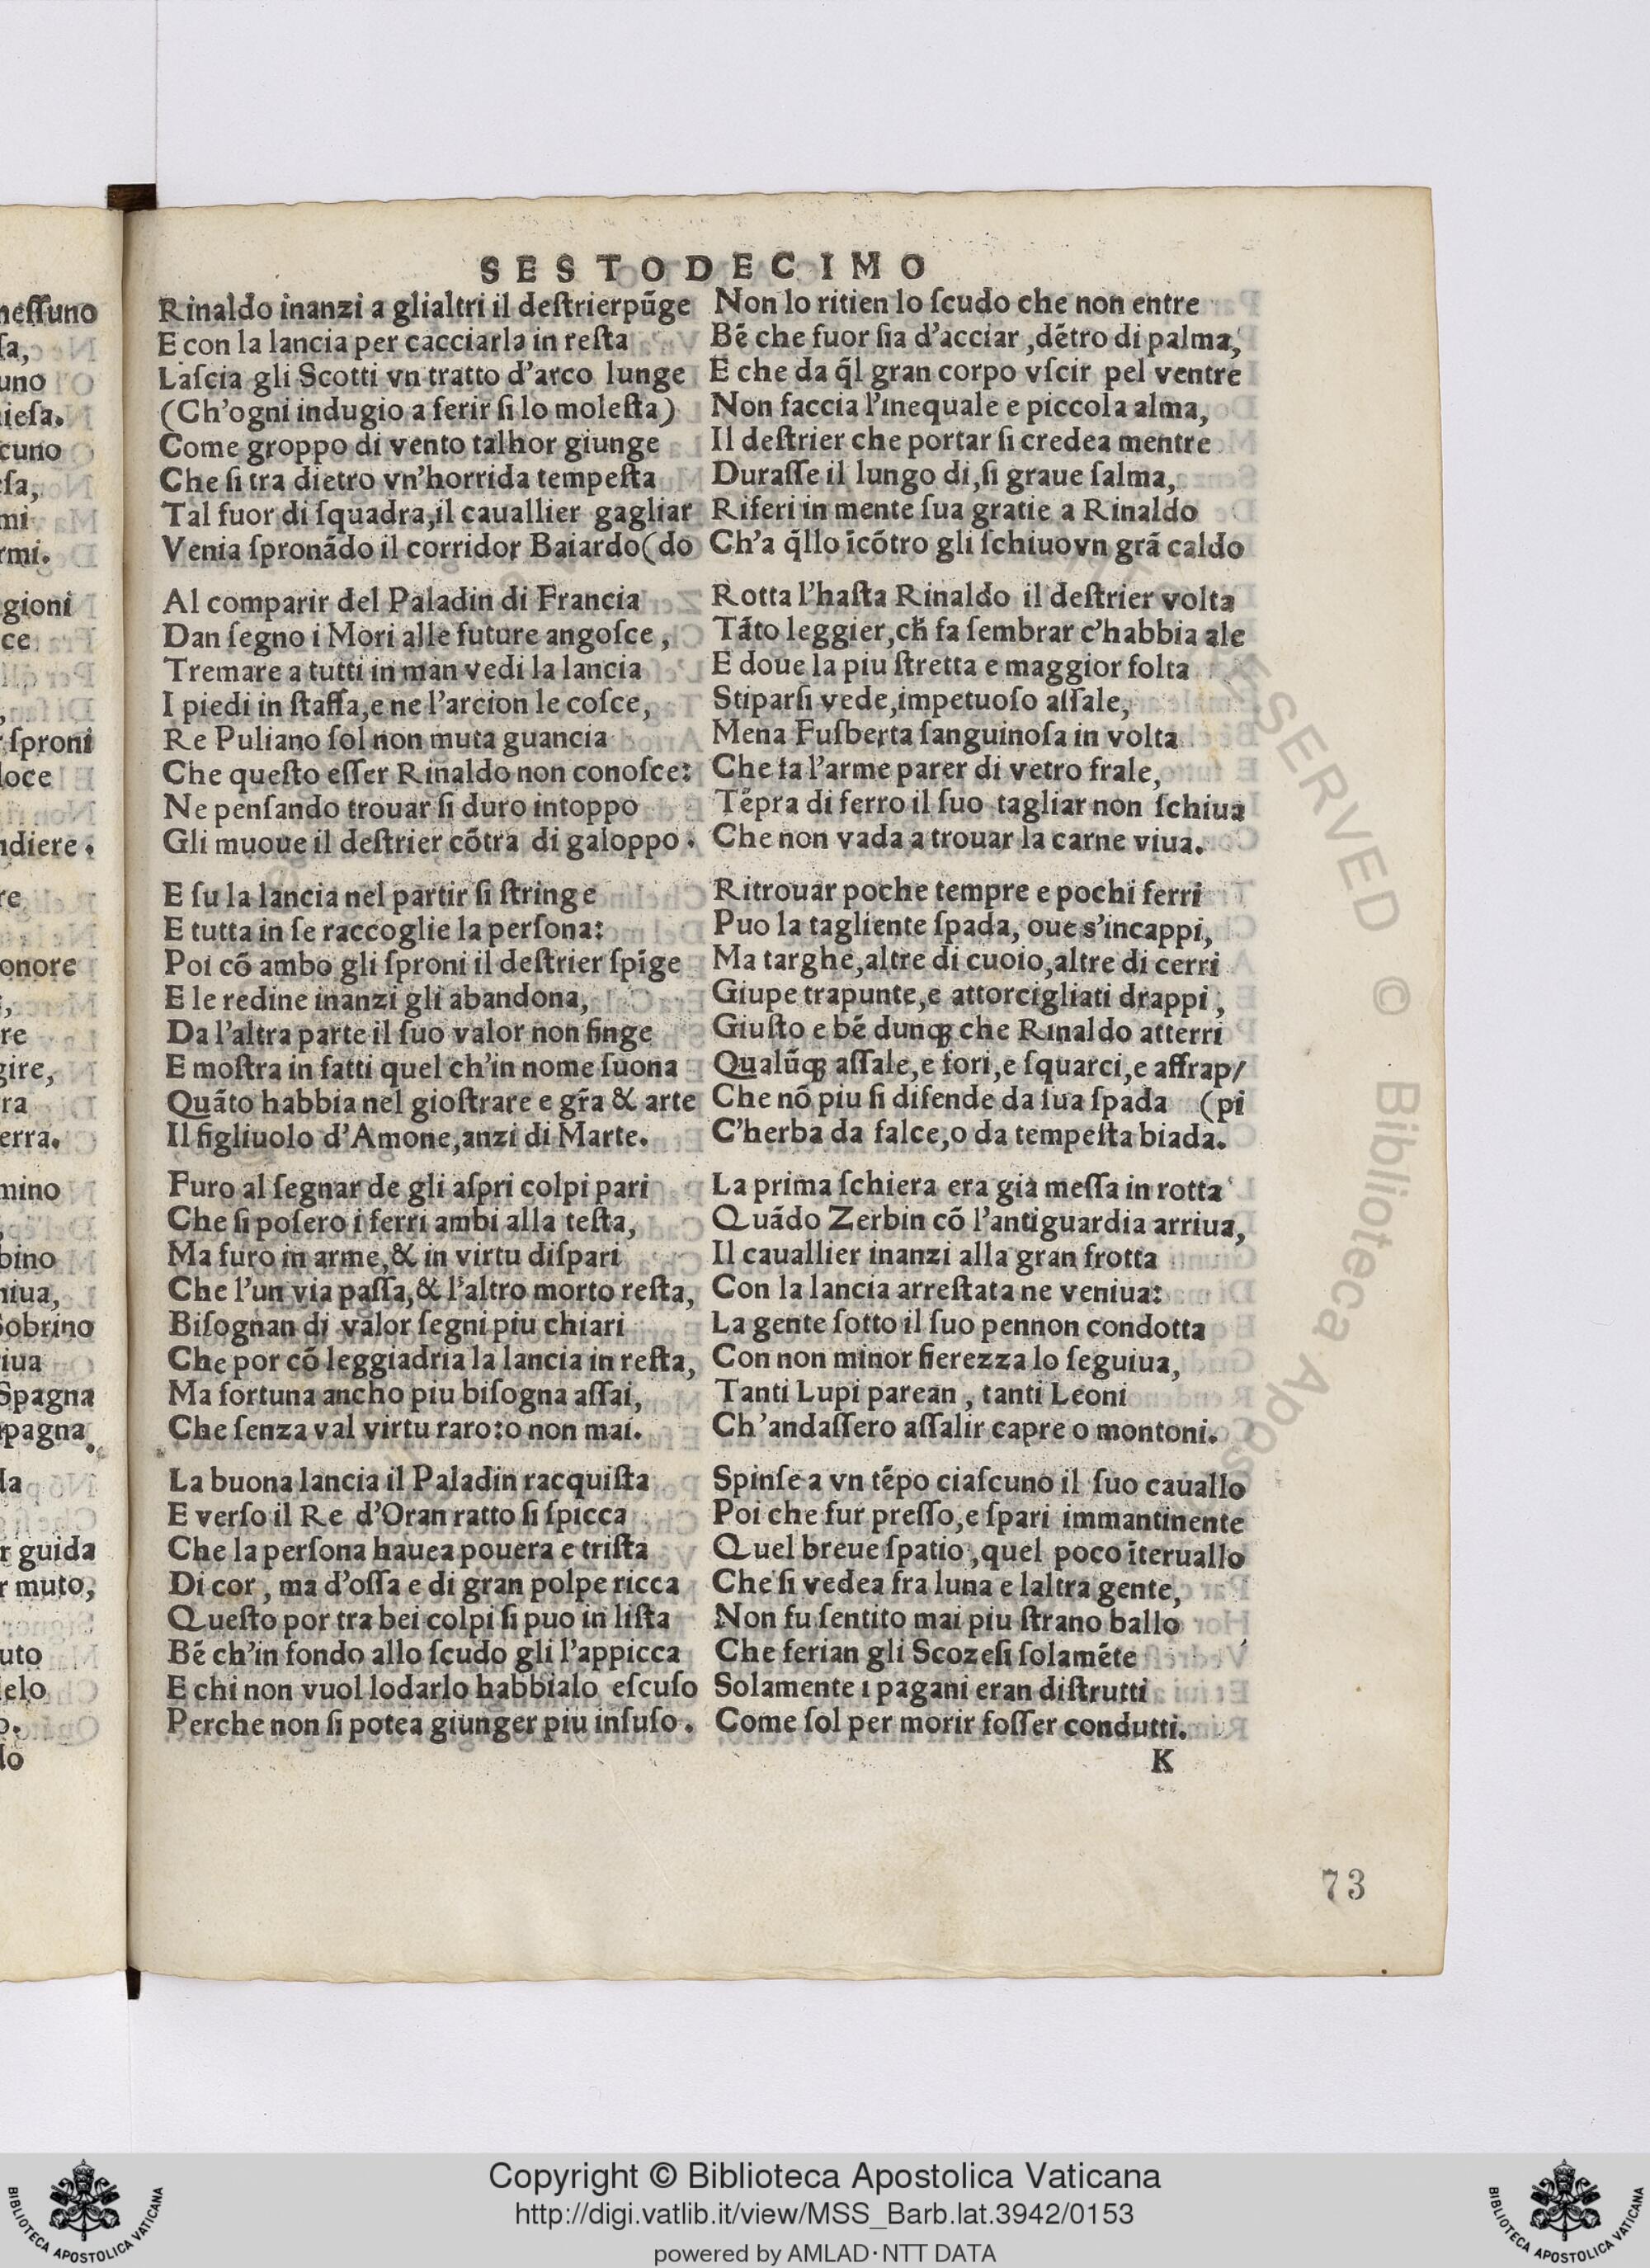 SESTODECIMO
Rinaldo inanzi a glialtri il deſtrierpũge
E con la lancia per cacciarla in reſta
Laſcia gli Scotti vn tratto d'arco lunge
(Ch'ogni indugio a ferir ſi lo moleſta)
Come groppo di vento talhor giunge
Che ſi tra dietro vn'horrida tempeſta
Tal fuor di ſquadra,il cauallier gagliar
Venia ſpronãdo il corridor Baiardo(do
Al comparir del Paladin di Francia
Dan ſegno i Mori alle future angoſce,
Tremare a tutti in man vedi la lancia
I piedi in ſtaffa,e ne l'arcion le coſce,
Re Puliano ſol non muta guancia
Che queſto eſſer Rinaldo non conoſce:
Ne penſando trouar ſi duro intoppo
Gli muoue il deſtrier cõtra di galoppo.
E ſu la lancia nel partir ſi ſtringe
E tutta in ſe raccoglie la perſona:
Poi cõ ambo gli ſproni il deſtrier ſpĩge
E le redine inanzi gli abandona,
Da l'altra parte il ſuo valor non finge
E moſtra in fatti quel ch'in nome ſuona
Quãto habbia nel gioſtrare e gr̃a & arte
Il figliuolo d'Amone,anzi di Marte.
Furo al ſegnar de gli aſpri colpi pari
Che ſi poſero i ferri ambi alla teſta,
Ma furo in arme,& in virtu diſpari
Che l'un via paſſa,& l'altro morto reſta,
Biſognan di valor ſegni piu chiari
Che por cõ leggiadria la lancia in reſta,
Ma fortuna ancho piu biſogna aſſai,
Che ſenza val virtu raro:o non mai.
La buona lancia il Paladin racquiſta
E verſo il Re d'Oran ratto ſi ſpicca
Che la perſona hauea pouera e triſta
Di cor, ma d'oſſa e di gran polpe ricca
Queſto por tra bei colpi ſi puo in liſta
Bẽ ch'in fondo allo ſcudo gli l'appicca
E chi non vuol lodarlo habbialo eſcuſo
Perche non ſi potea giunger piu inſuſo.
Non lo ritien lo ſcudo che non entre
Bẽ che fuor ſia d'acciar,dẽtro di palma,
E che da q̃l gran corpo vſcir pel ventre
Non faccia l'inequale e piccola alma,
Il deſtrier che portar ſi credea mentre
Duraſſe il lungo di,ſi graue ſalma,
Riferi in mente ſua gratie a Rinaldo
Ch'a q̃llo ĩcõtro gli ſchiuovn grã caldo
Rotta l'haſta Rinaldo il deſtrier volta
Tãto leggier,ch̃ fa ſembrar c'habbia ale
E doue la piu ſtretta e maggior folta
Stiparſi vede,impetuoſo aſſale,
Mena Fuſberta ſanguinoſa in volta
Che fa l'arme parer di vetro frale,
Tẽpra di ferro il ſuo tagliar non ſchiua
Che non vada a trouar la carne viua.
Ritrouar poche tempre e pochi ferri
Puo la tagliente ſpada, oue s'incappi,
Ma targhe,altre di cuoio,altre di cerri
Giupe trapunte,e attorcigliati drappi,
Giuſto e bẽ dunqꝫ che Rinaldo atterri
Qualũqꝫ aſſale,e fori,e ſquarci,e affrap/
Che nõ piu ſi difende da ſua ſpada (pi
C'herba da falce,o da tempeſta biada.
La prima ſchiera era gia meſſa in rotta
Quãdo Zerbin cõ l'antiguardia arriua,
Il cauallier inanzi alla gran frotta
Con la lancia arreſtata ne veniua:
La gente ſotto il ſuo pennon condotta
Con non minor fierezza lo ſeguiua,
Tanti Lupi parean, tanti Leoni
Ch'andaſſero aſſalir capre o montoni.
Spinſe a vn tẽpo ciaſcuno il ſuo cauallo
Poi che fur preſſo,e ſpari immantinente
Quel breue ſpatio,quel poco ĩteruallo
Che ſi vedea fra luna e laltra gente,
Non fu ſentito mai piu ſtrano ballo
Che ferian gli Scozeſi ſolamẽte
Solamente i pagani eran diſtrutti
Come ſol per morir foſſer condutti.
K
73
Copyright © Biblioteca Apostolica Vaticana
http://digi.vatlib.it/view/MSS_Barb.lat.3942/0153
powered by AMLAD·NTT DATA
BIBLIOTECA APOSTOLICA VATICANA
BIBLIOTECA APOSTOLICA VATICANA